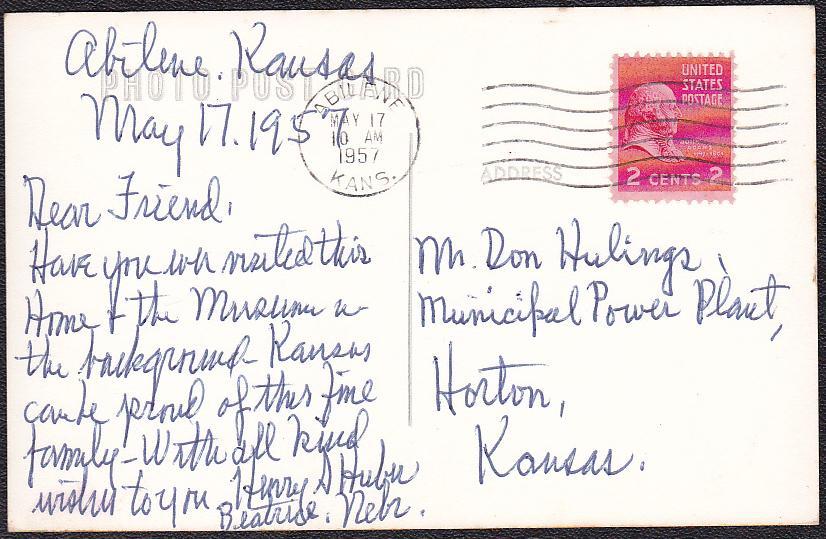 Abilene, Kansas
PHOTO POSTCARD
May 17. 1957
ABILENE
MAY 17
10 AM
1957
KANS.
UNITED
STATES
POSTAGE
JOHN
ADAMS
2 CENTS 2
ADDRESS
Dear Friend.
Have you ever visited this
Home & the Museum in
the background - Kansas
can be proud of this fine
family - With all kind
wishes to you. Henry S Huber
Beatrice. Nebr.
Mr. Don Hulings,
Municipal Power Plant,
Horton,
Kansas.